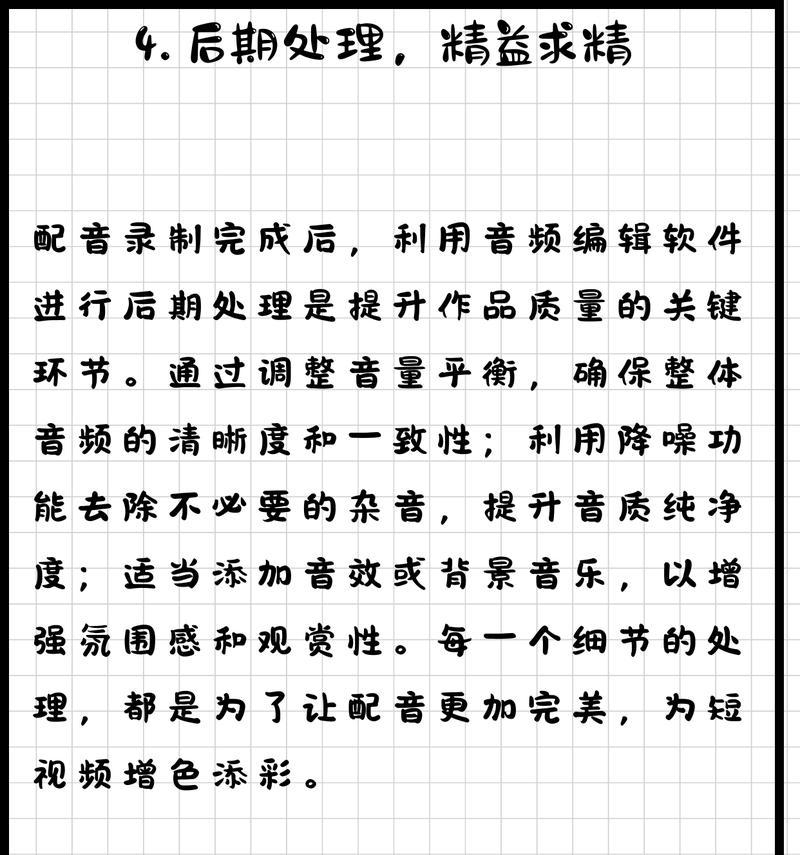 4. 后期处理，精益求精
配音录制完成后，利用音频编辑软件
进行后期处理是提升作品质量的关键
环节。通过调整音量平衡，确保整体
音频的清晰度和一致性；利用降噪功
能去除不必要的杂音，提升音质纯净
度；适当添加音效或背景音乐，以增
强氛围感和观赏性。每一个细节的处
理，都是为了让配音更加完美，为短
视频增色添彩。